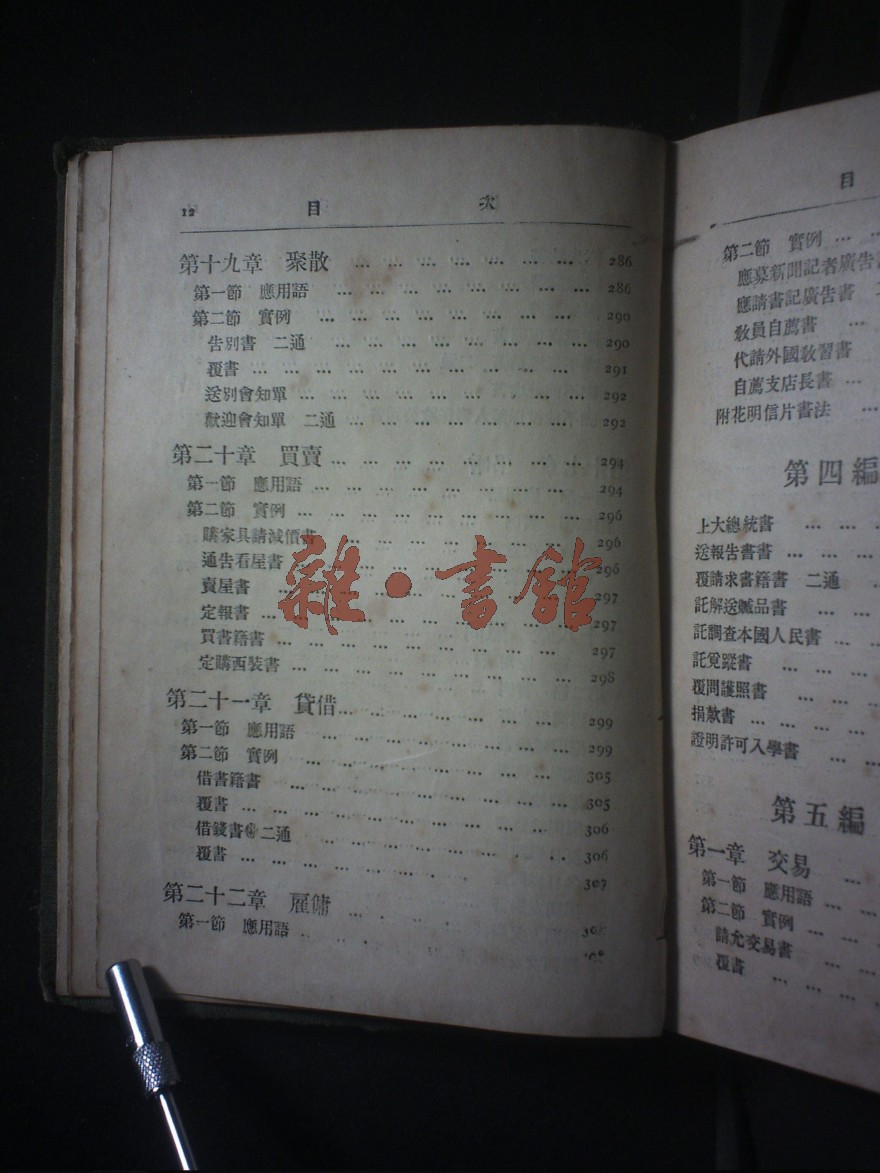 12 目 次
第十九章 聚散 … … … … … … … 286
第一節 應用語 … … … … … … … 286
第二節 實例 … … … … … … … 290
告別書 二通 … … … … … … … 290
覆書 … … … … … … … … 291
送別會知單 … … … … … … … 292
歡迎會知單 二通 … … … … … … 292
第二十章 買賣 … … … … … … … 294
第一節 應用語 … … … … … … … 294
第二節 實例 … … … … … … … 296
購家具請減價書 … … … … … … 296
通告看屋書 … … … … … … … 296
賣屋書 … … … … … … … … 297
定報書 … … … … … … … … 297
買書籍書 … … … … … … … 297
定購西裝書 … … … … … … … 298
第二十一章 貸借 … … … … … … … 299
第一節 應用語 … … … … … … … 299
第二節 實例 … … … … … … … 305
借書籍書 … … … … … … … 305
覆書 … … … … … … … … 306
借錢書 二通 … … … … … … 306
覆書 … … … … … … … 307
第二十二章 雇傭 … … … … …
第一節 應用語
雜·書館
目
第二節 實例 … …
應募新聞記者廣告
應請書記廣告書
敎員自薦書 …
代請外國敎習書
自薦支店長書 …
附花明信片書法 …
第四編
上大總統書 … …
送報告書書 … … …
覆請求書籍書 二通 …
託解送贓品書 … …
託調查本國人民書 …
託覓蹤書 … …
覆問護照書 … …
捐款書 … … …
證明許可入學書 …
第五編
第一章 交易 …
第一節 應用語 …
第二節 實例 … …
請允交易書 … …
覆書 … … …